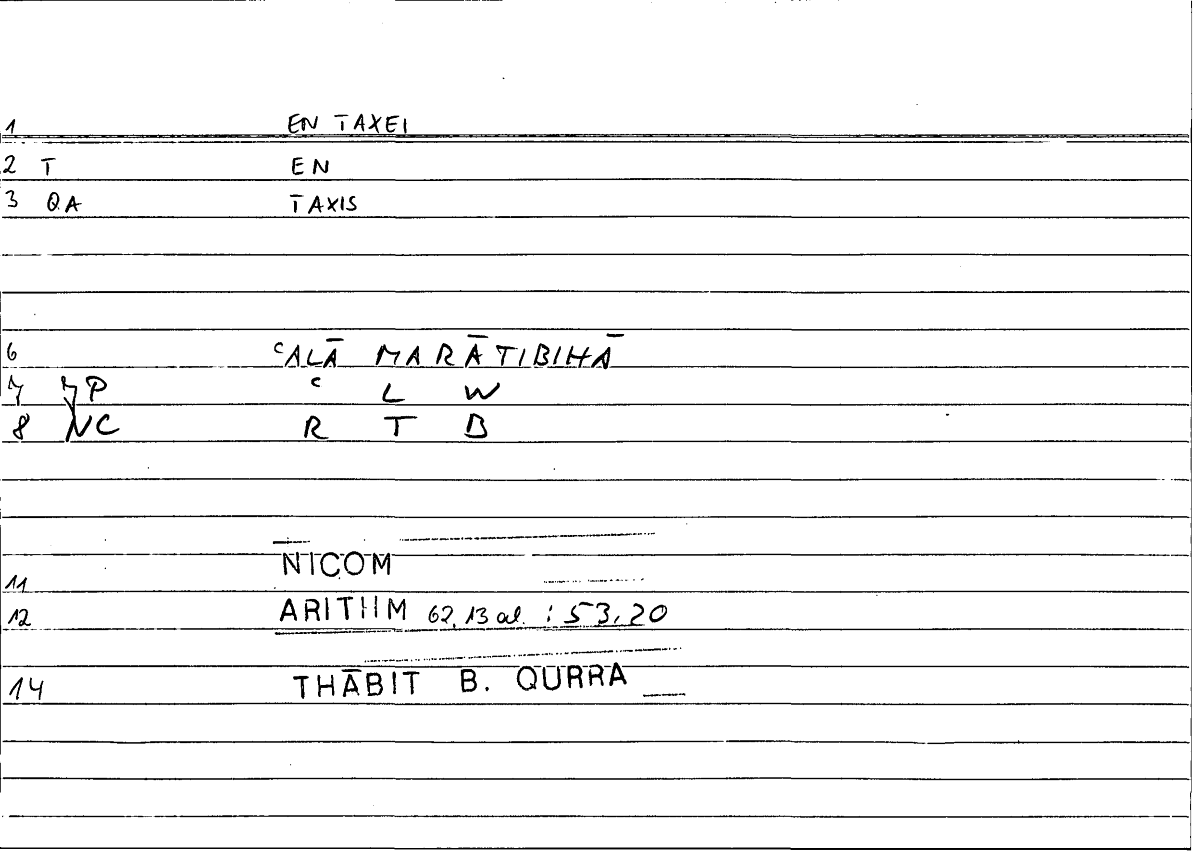 1 EN TAXEI
2 T EN
3 QA TAXIS
6 ʿALĀ MARĀTIBIHĀ
7 JP ʿ L W
8 NC R T B
NICOM
11
12 ARITHM 62,13 al. : 53,20
14 THĀBIT B. QURRA